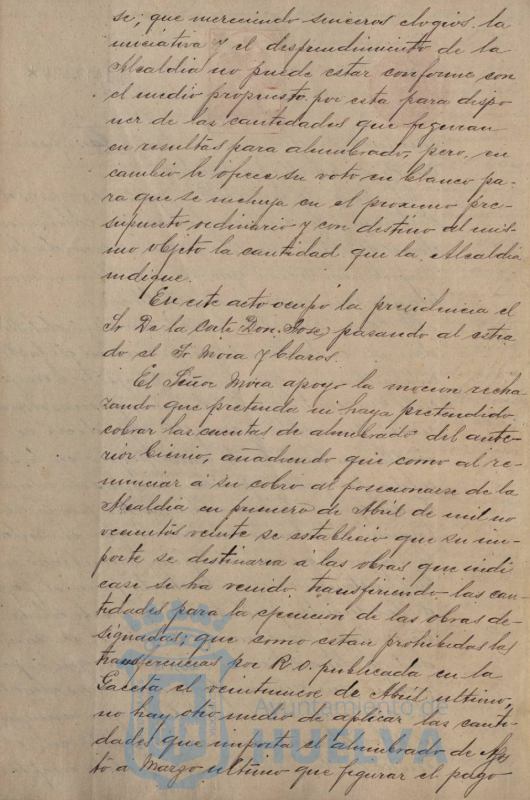 se; que mereciendo sinceros elogios la
iniciativa y el desprendimiento de la
Alcaldia no puede estar conforme con
el medio propuesto por esta para dispo-
ner de las cantidades que figuran
en resultas para alumbrado, pero, en
cambio le ofrece su voto en blanco pa-
ra que se incluya en el proximo pre-
supuesto ordinario y con destino al mis-
mo objeto la cantidad que la Alcaldia
indique.
En este acto ocupó la presidencia el
Sr De la Corte Don José, pasando al estra
do el Sr Mora y Claros.
El Señor Mora apoyo la mocion recha
zando que pretenda ni haya pretendido
cobrar las cuentas de alumbrado del ante-
rior bienio, añadiendo que como al re-
nunciar á su cobro al posecionarse de la
Alcaldia en primero de Abril de mil no
vecientos veinte se estableció que su im-
porte se destinaria á las obras que indi
case se ha venido transfiriendo las can-
tidades para la ejecucion de las obras de-
signadas; que como estan prohibidas las
transferencias por R. O. publicada en la
Gaceta el veintinueve de Abril ultimo,
no hay otro medio de aplicar las canti-
dades que importa el alumbrado de Agos
to a Marzo ultimo que figurar el pago
Ayuntamiento de
HUELVA